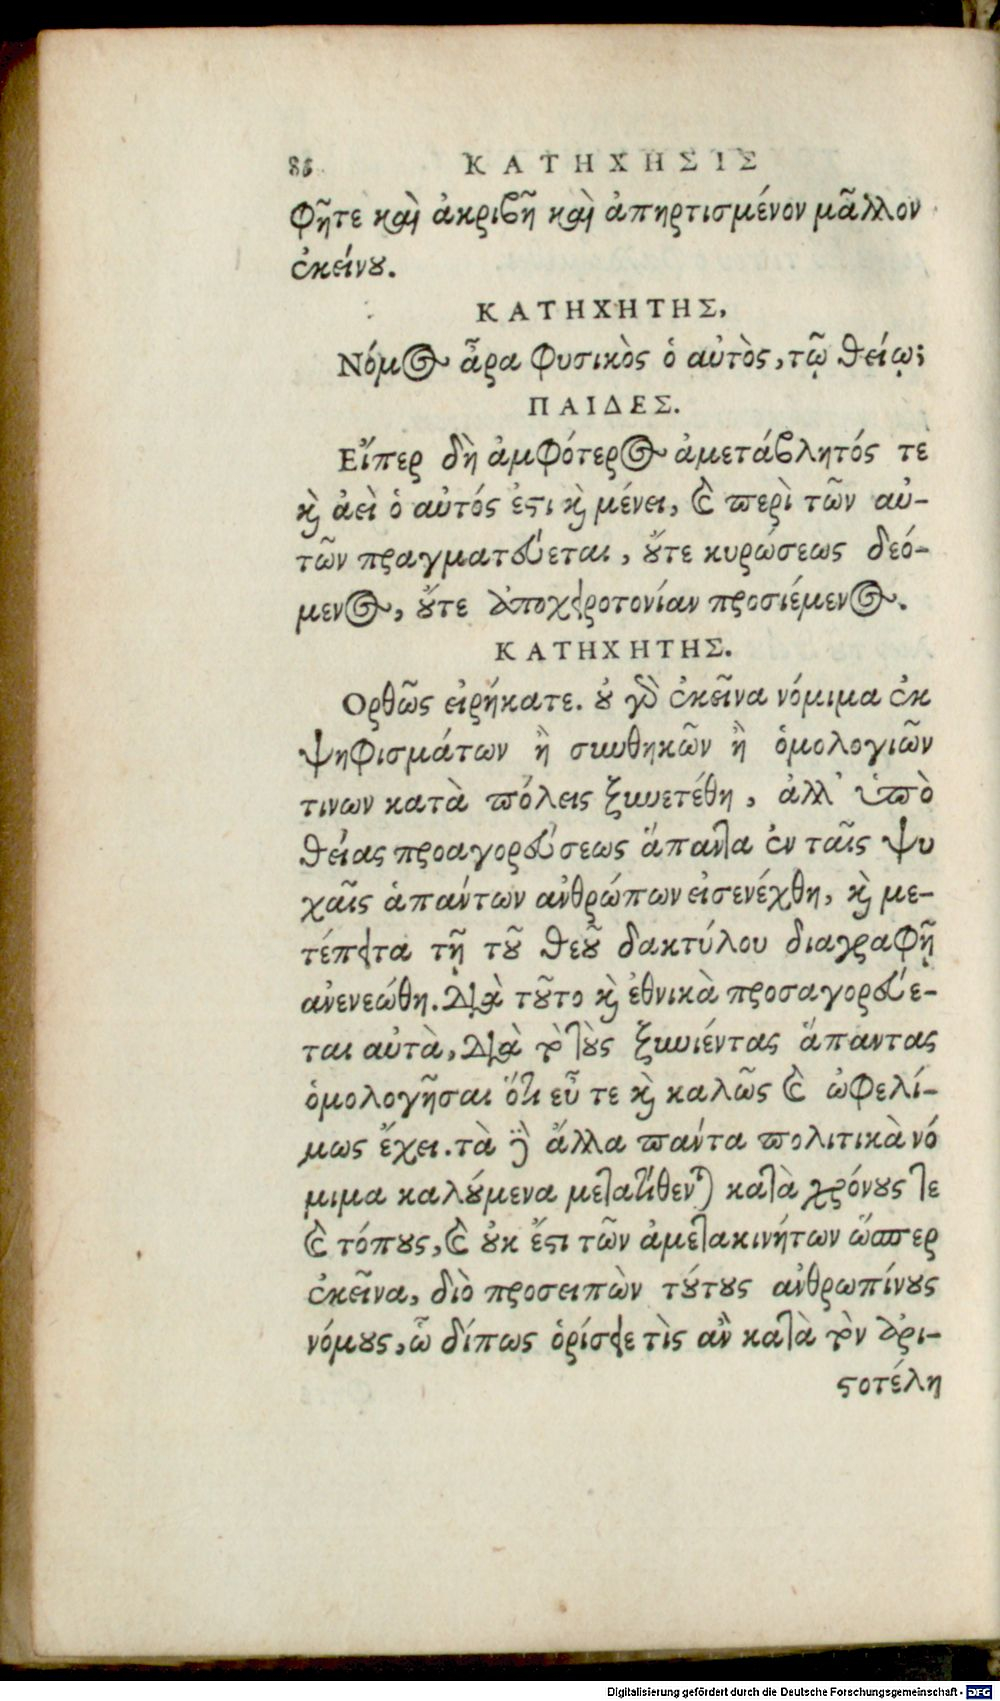 86 ΚΑΤΗΧΗΣΙΣ
φῆτε καὶ ἀκριβῆ καὶ ἀπηρτισμένον μᾶλλον
ἐκείνου.
ΚΑΤΗΧΗΤΗΣ.
Νόμος ἆρα φυσικὸς ὁ αὐτὸς, τῷ θείῳ;
ΠΑΙΔΕΣ.
Εἴπερ δὴ ἀμφότερος ἀμετάβλητός τε
καὶ ἀεὶ ὁ αὐτός ἐστι καὶ μένει, καὶ περὶ τῶν αὐ-
τῶν πραγματεύεται, οὔτε κυρώσεως δεό-
μενος, οὔτε ἀποχειροτονίαν προσιέμενος.
ΚΑΤΗΧΗΤΗΣ.
Ορθῶς εἰρήκατε. οὐ γὰρ ἐκεῖνα νόμιμα ἐκ
ψηφισμάτων ἢ συνθηκῶν ἢ ὁμολογιῶν
τινων κατὰ πόλεις ξυνετέθη, ἀλλ' ὑπὸ
θείας προαγορεύσεως ἅπαντα ἐν ταῖς ψυ
χαῖς ἁπάντων ἀνθρώπων εἰσενέχθη, καὶ με-
τέπειτα τῇ τοῦ θεοῦ δακτύλου διαγραφῇ
ἀνενεώθη. Διὰ τοῦτο καὶ ἐθνικὰ προσαγορεύε-
ται αὐτὰ, Διὰ τὸ τοὺς ξυνιέντας ἅπαντας
ὁμολογῆσαι ὅτι εὖ τε καὶ καλῶς καὶ ὠφελί-
μως ἔχει. τὰ δὲ ἄλλα πάντα πολιτικὰ νό
μιμα καλούμενα μετατίθενται κατὰ χρόνους τε
καὶ τόπους, καὶ οὐκ ἔστι τῶν ἀμετακινήτων ὥσπερ
ἐκεῖνα, διὸ προσειπὼν τούτους ἀνθρωπίνους
νόμους, ὧδίπως ὁρίσειε τὶς ἂν κατὰ τὸν ἀρι-
στοτέλη
Digitalisierung gefördert durch die Deutsche Forschungsgemeinschaft - DFG